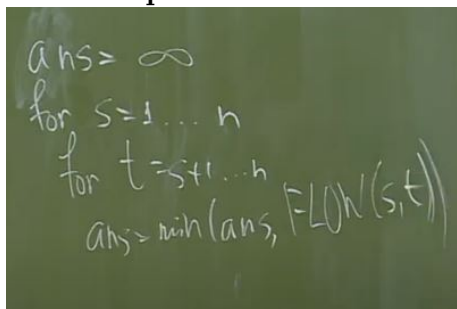 ans = ∞
for s=1...n
for t=s+1...n
ans=min(ans, FLOW(s,t))